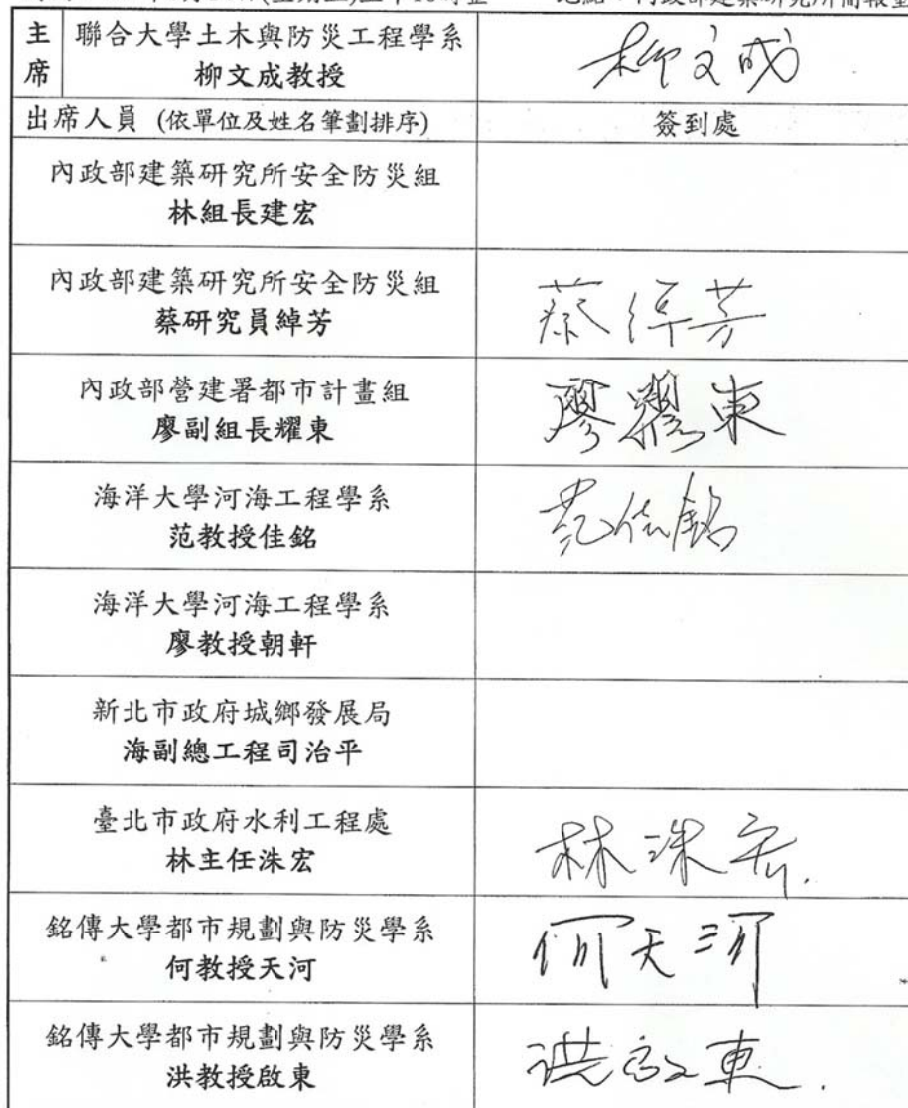 主席
聯合大學土木與防災工程學系
柳文成教授
柳文成
出席人員 (依單位及姓名筆劃排序)
簽到處
內政部建築研究所安全防災組
林組長建宏
內政部建築研究所安全防災組
蔡研究員綽芳
蔡綽芳
內政部營建署都市計畫組
廖副組長耀東
廖耀東
海洋大學河海工程學系
范教授佳銘
范佳銘
海洋大學河海工程學系
廖教授朝軒
新北市政府城鄉發展局
海副總工程司治平
臺北市政府水利工程處
林主任洙宏
林洙宏
銘傳大學都市規劃與防災學系
何教授天河
何天河
銘傳大學都市規劃與防災學系
洪教授啟東
洪啟東